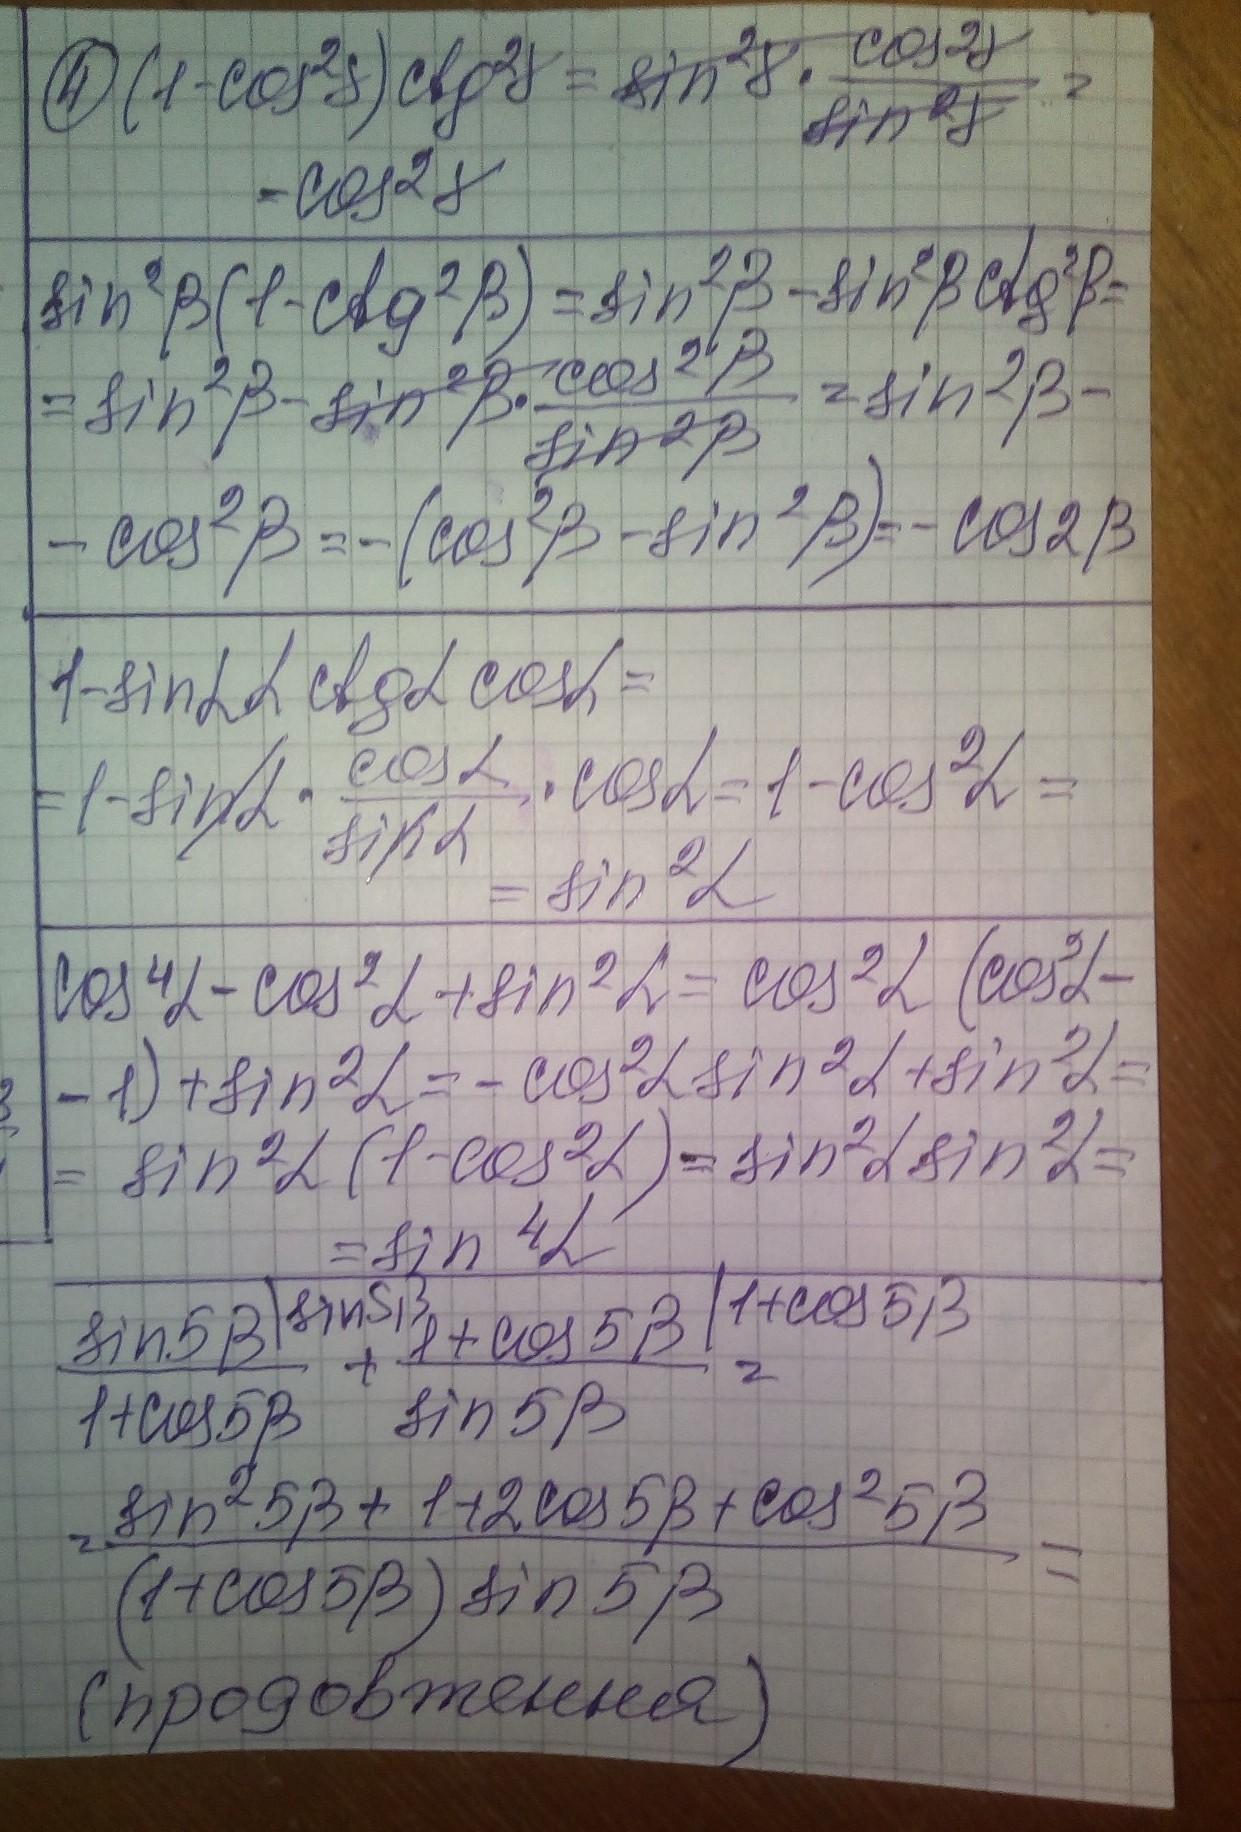 ④ (1-cos²γ)ctg²γ = sin²γ · cos²γ/sin²γ =
= cos²γ
sin²β(1-ctg²β) = sin²β - sin²β ctg²β =
= sin²β - sin²β · cos²β/sin²β = sin²β -
- cos²β = -(cos²β - sin²β) = - cos2β
1-sinα ctgα cosα =
= 1-sinα · cosα/sinα · cosα = 1-cos²α =
= sin²α
cos⁴α - cos²α + sin²α = cos²α (cos²α -
- 1) + sin²α = - cos²α sin²α + sin²α =
= sin²α (1-cos²α) = sin²α sin²α =
= sin⁴α
sin5β|sin5β / 1+cos5β + 1+cos5β|1+cos5β / sin5β =
= sin²5β + 1+2cos5β + cos²5β / (1+cos5β) sin5β =
(продовження)